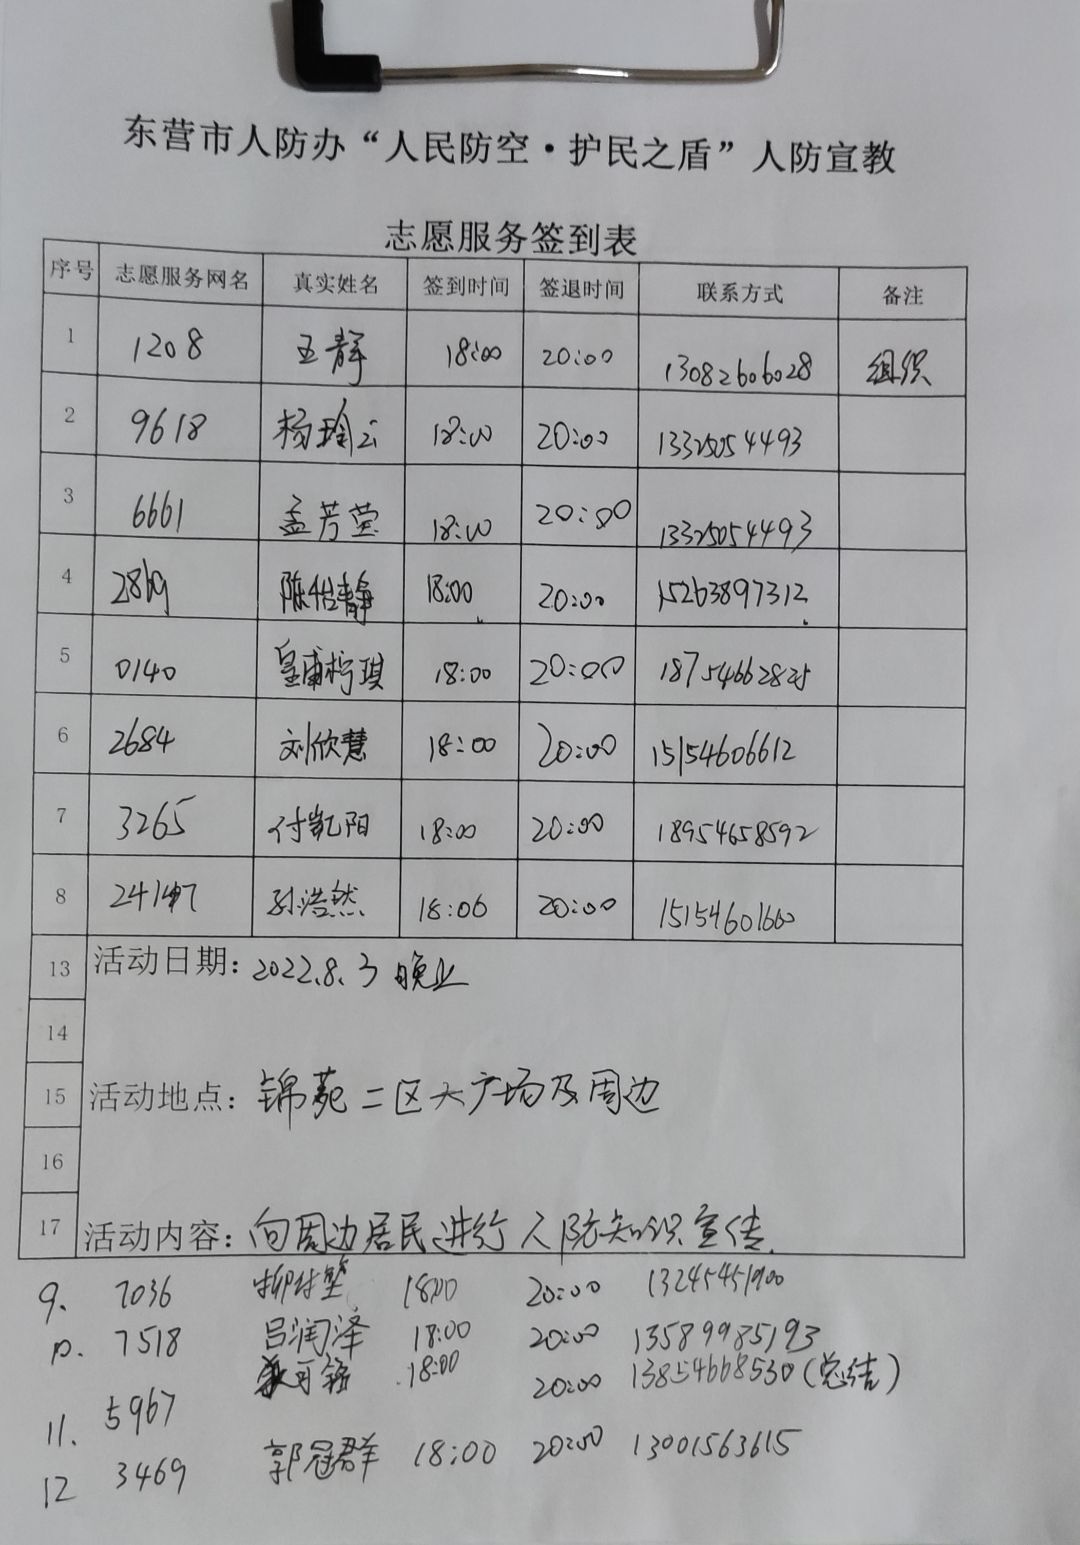 东营市人防办“人民防空·护民之盾”人防宣教
志愿服务签到表
序号 志愿服务网名 真实姓名 签到时间 签退时间 联系方式 备注
1 1208 王静 18:00 20:00 13082606028 组织
2 9618 杨瑜云 18:00 20:00 13325054493
3 6661 孟芳莹 18:00 20:00 13325054493
4 2869 陈怡静 18:00 20:00 15263897312
5 0140 皇甫柠琪 18:00 20:00 18754662825
6 2684 刘欣慧 18:00 20:00 15154606612
7 3265 付凯阳 18:00 20:00 18954658592
8 孙浩然 18:00 20:00 15154601660
13 活动日期: 2022.8.3 晚上
14
15 活动地点: 锦苑二区大广场及周边
16
17 活动内容: 向周边居民进行人防知识宣传
9. 7036 18:00 20:00 13245451900
10. 7518 吕润泽 18:00 20:00 13589985193
11. 5967 18:00 20:00 13854668530 (总结)
12 3469 郭冠群 18:00 20:00 13001563615